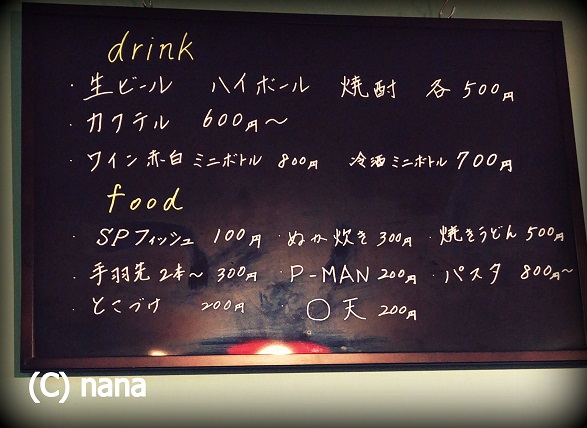 drink
・生ビール ハイボール 焼酎 各500円
・カクテル 600円〜
・ワイン 赤・白 ミニボトル 800円 冷酒 ミニボトル 700円
food
・SPフィッシュ 100円 ・ぬか炊き 300円 ・焼きうどん 500円
・手羽先 2本〜 300円 ・P-MAN 200円 ・パスタ 800円〜
・とこづけ 200円 ・〇天 200円
(C) nana